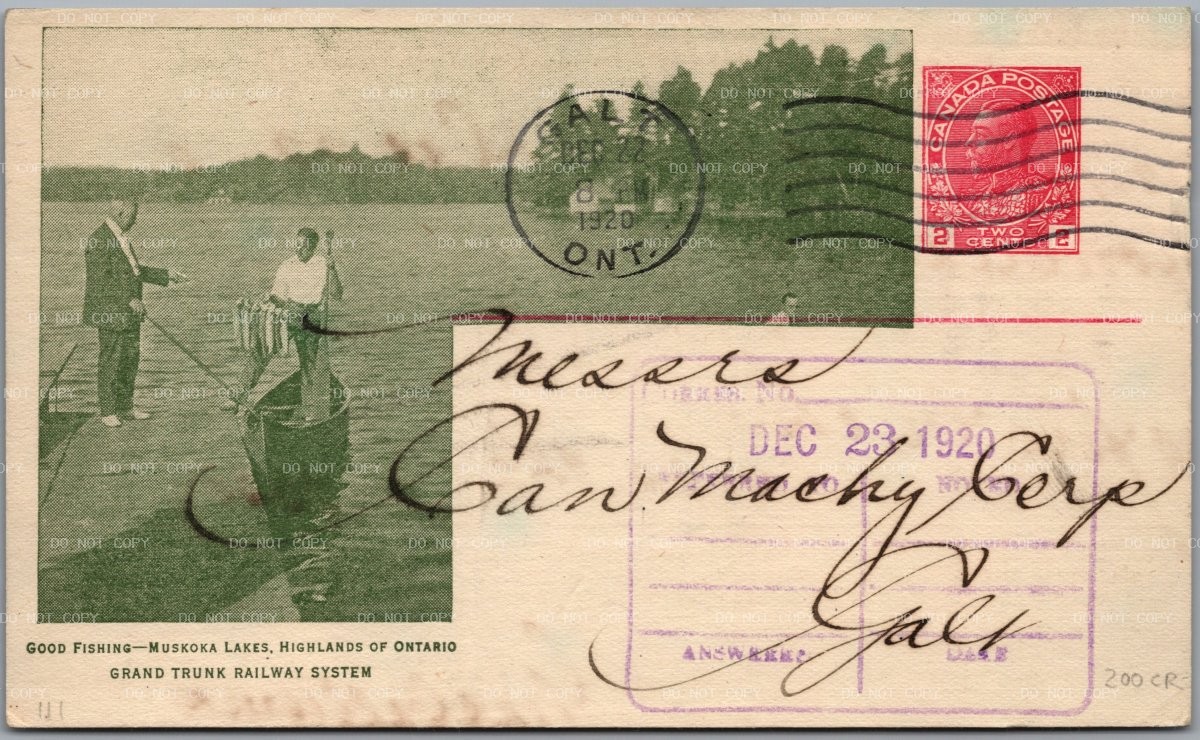 CANADA POSTAGE
2 TWO CENTS 2
GALT
DEC 22
1920
ONT.
Messrs
Can Machy Corp
Galt
No.
DEC 23 1920
ANSWERED
DATE
GOOD FISHING—MUSKOKA LAKES, HIGHLANDS OF ONTARIO
GRAND TRUNK RAILWAY SYSTEM
200 CR-
111
DO NOT COPY